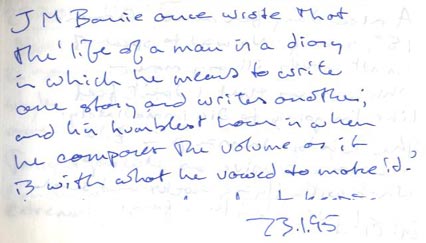 J M Barrie once wrote that
the 'life of a man is a diary
in which he means to write
one story and writes another;
and his humblest hour is when
he compares the volume as it
is with what he vowed to make it.'
23.1.95